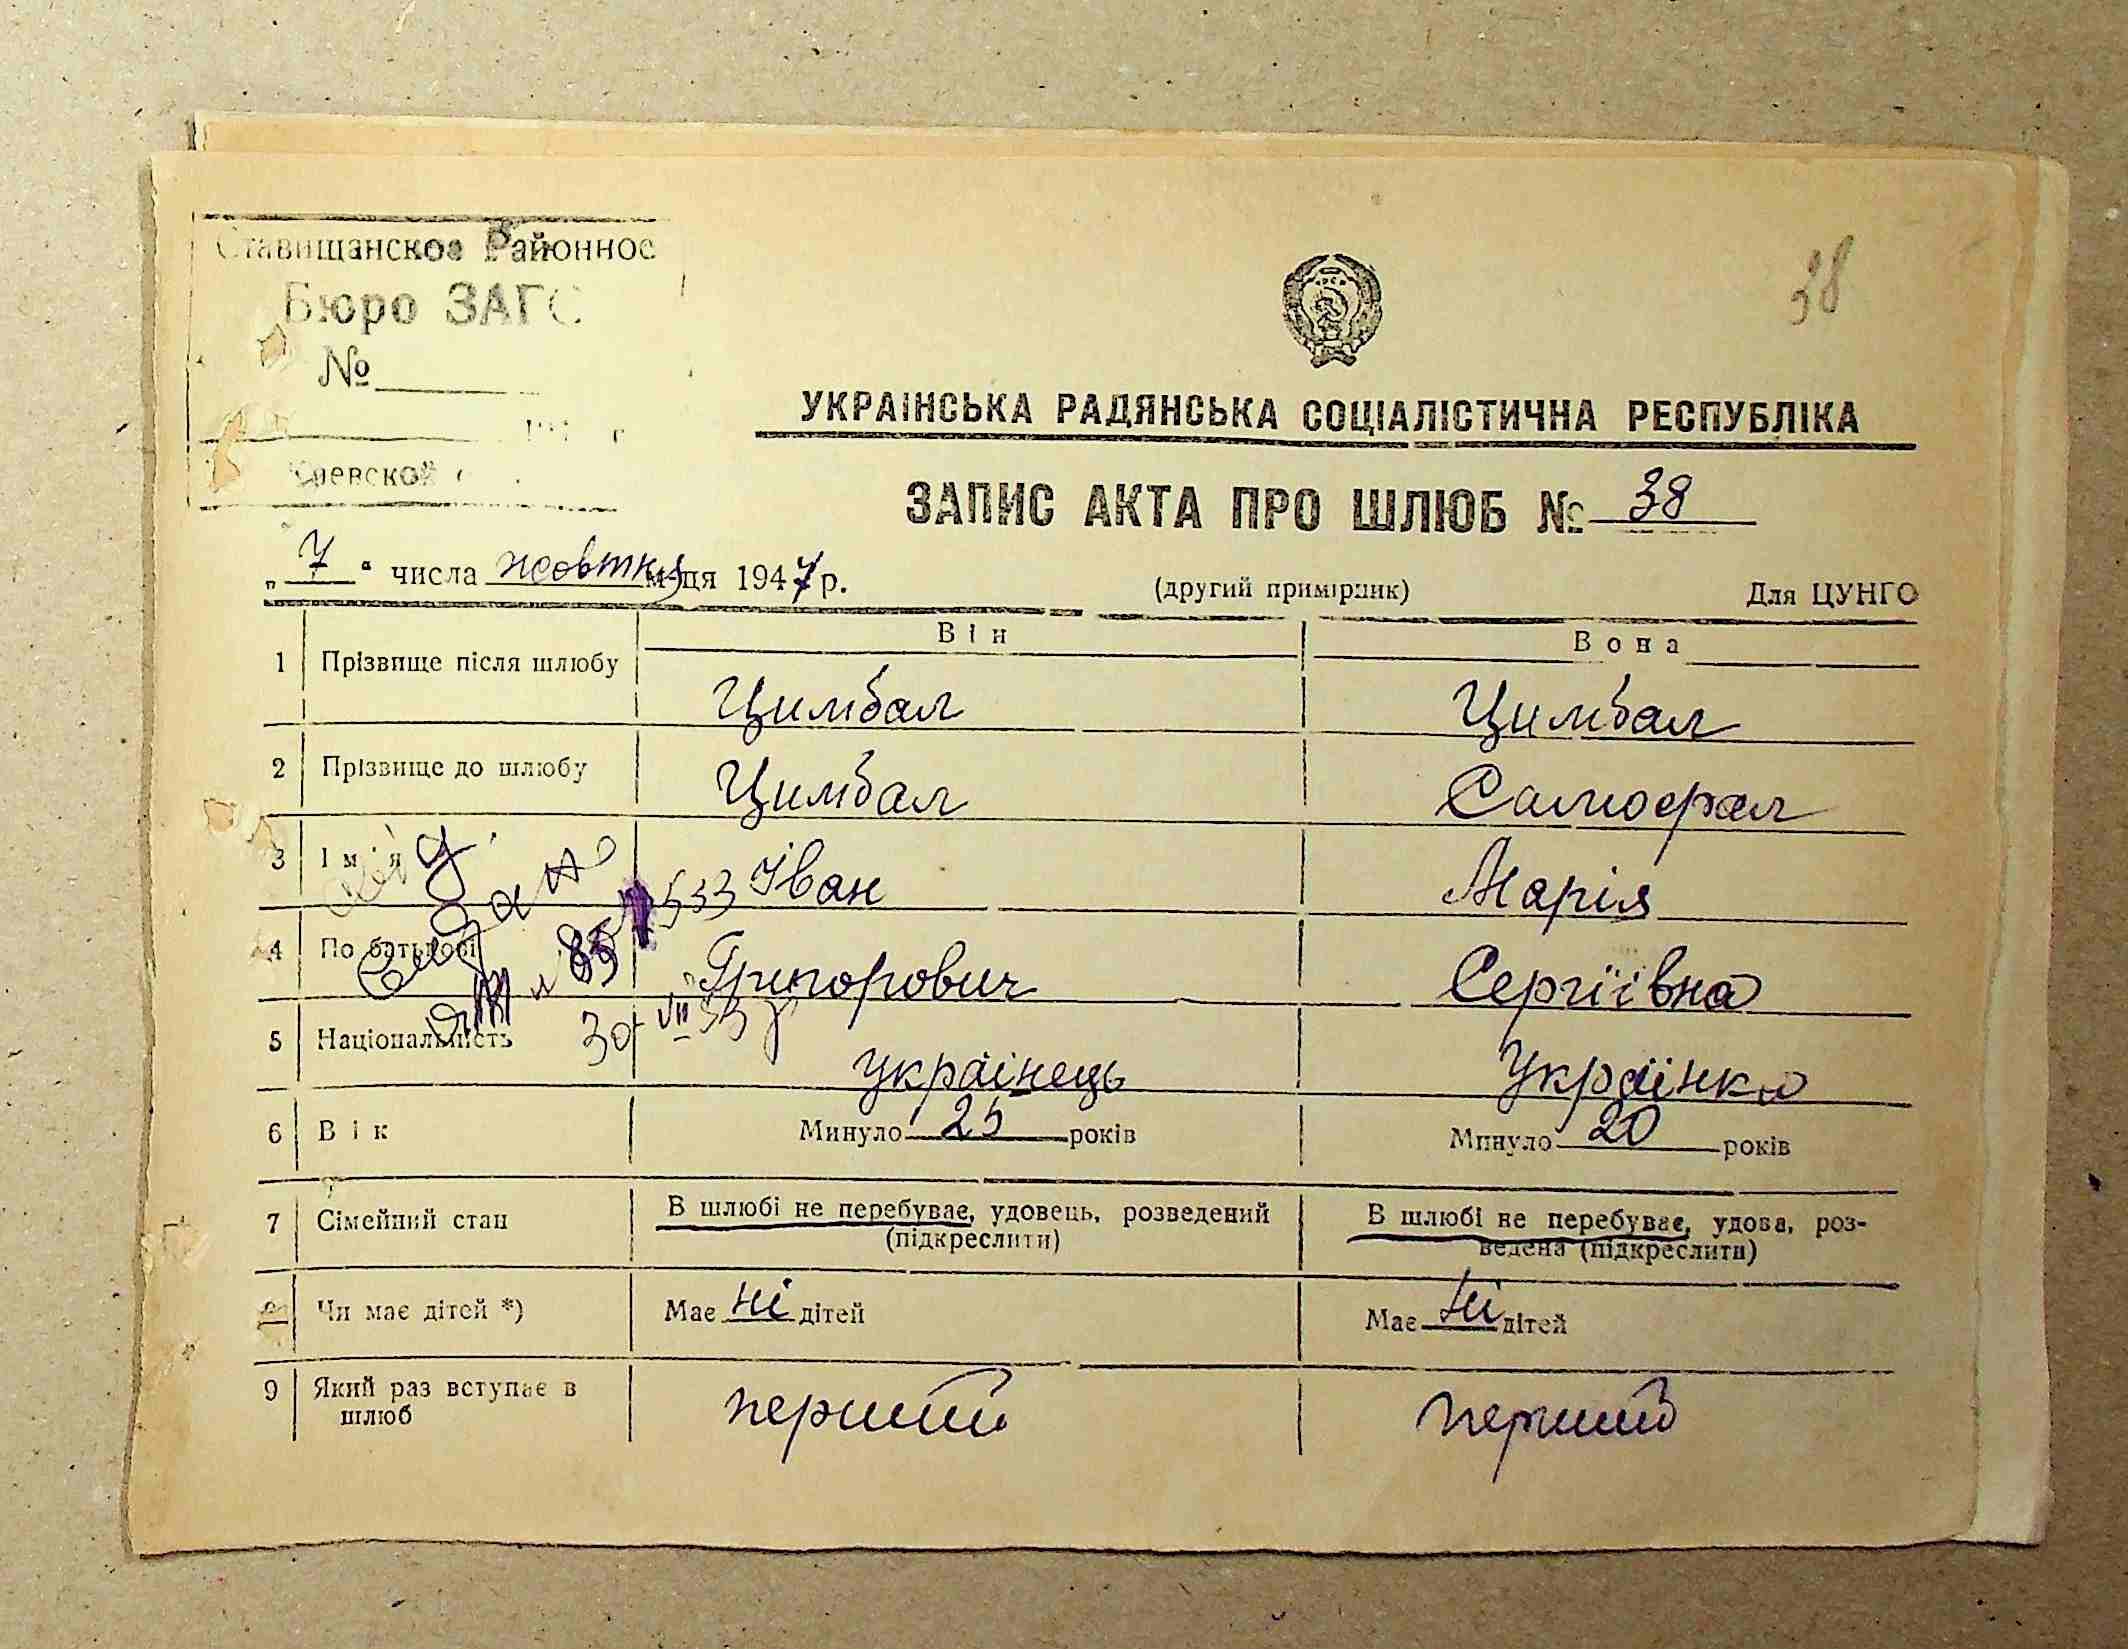 Ставищанское Районное
Бюро ЗАГС
№
Киевской
38
УКРАІНСЬКА РАДЯНСЬКА СОЦІАЛІСТИЧНА РЕСПУБЛІКА
ЗАПИС АКТА ПРО ШЛЮБ № 38
„7“ числа жовтня м-ця 1947 р. (другий примірник) Для ЦУНГО
Він Вона
1 Прізвище після шлюбу Цимбал Цимбал
2 Прізвище до шлюбу Цимбал Самофал
3 Ім'я Іван Марія
533
4 По батькові Григорович Сергіївна
30 VII 53 р
5 Національність українець Українка
6 Вік Минуло 25 років Минуло 20 років
7 Сімейний стан В шлюбі не перебуває, удовець, розведений (підкреслити) В шлюбі не перебуває, удова, роз-
ведена (підкреслити)
8 Чи має дітей *) Має ні дітей Має ні дітей
9 Який раз вступає в шлюб перший перший